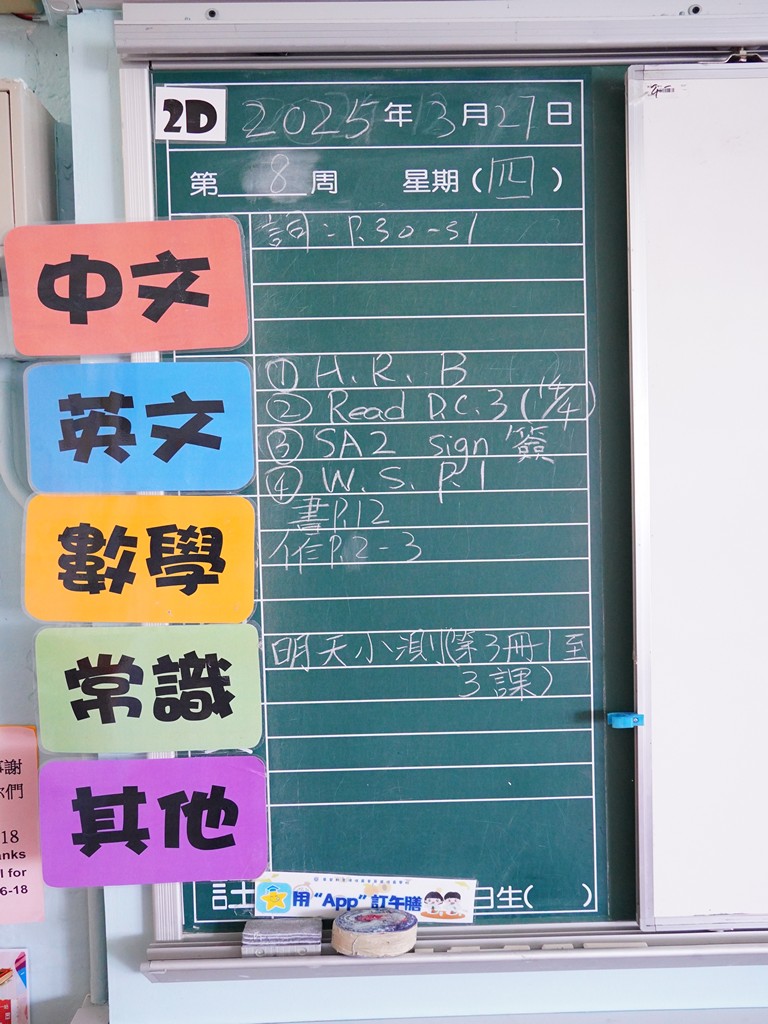 2D 2025年3月27日
第8周 星期(四)
中文
詞：P.30-31
英文
① H.R.B
② Read D.C.3 (14/4)
③ SA2 sign 簽
④ W.S. P.1
數學
書P.12
作P.2-3
常識
明天小測(第3冊1至
3課)
其他
用“App”訂午膳
日生( )
謝
你們
18
anks
l for
6-18